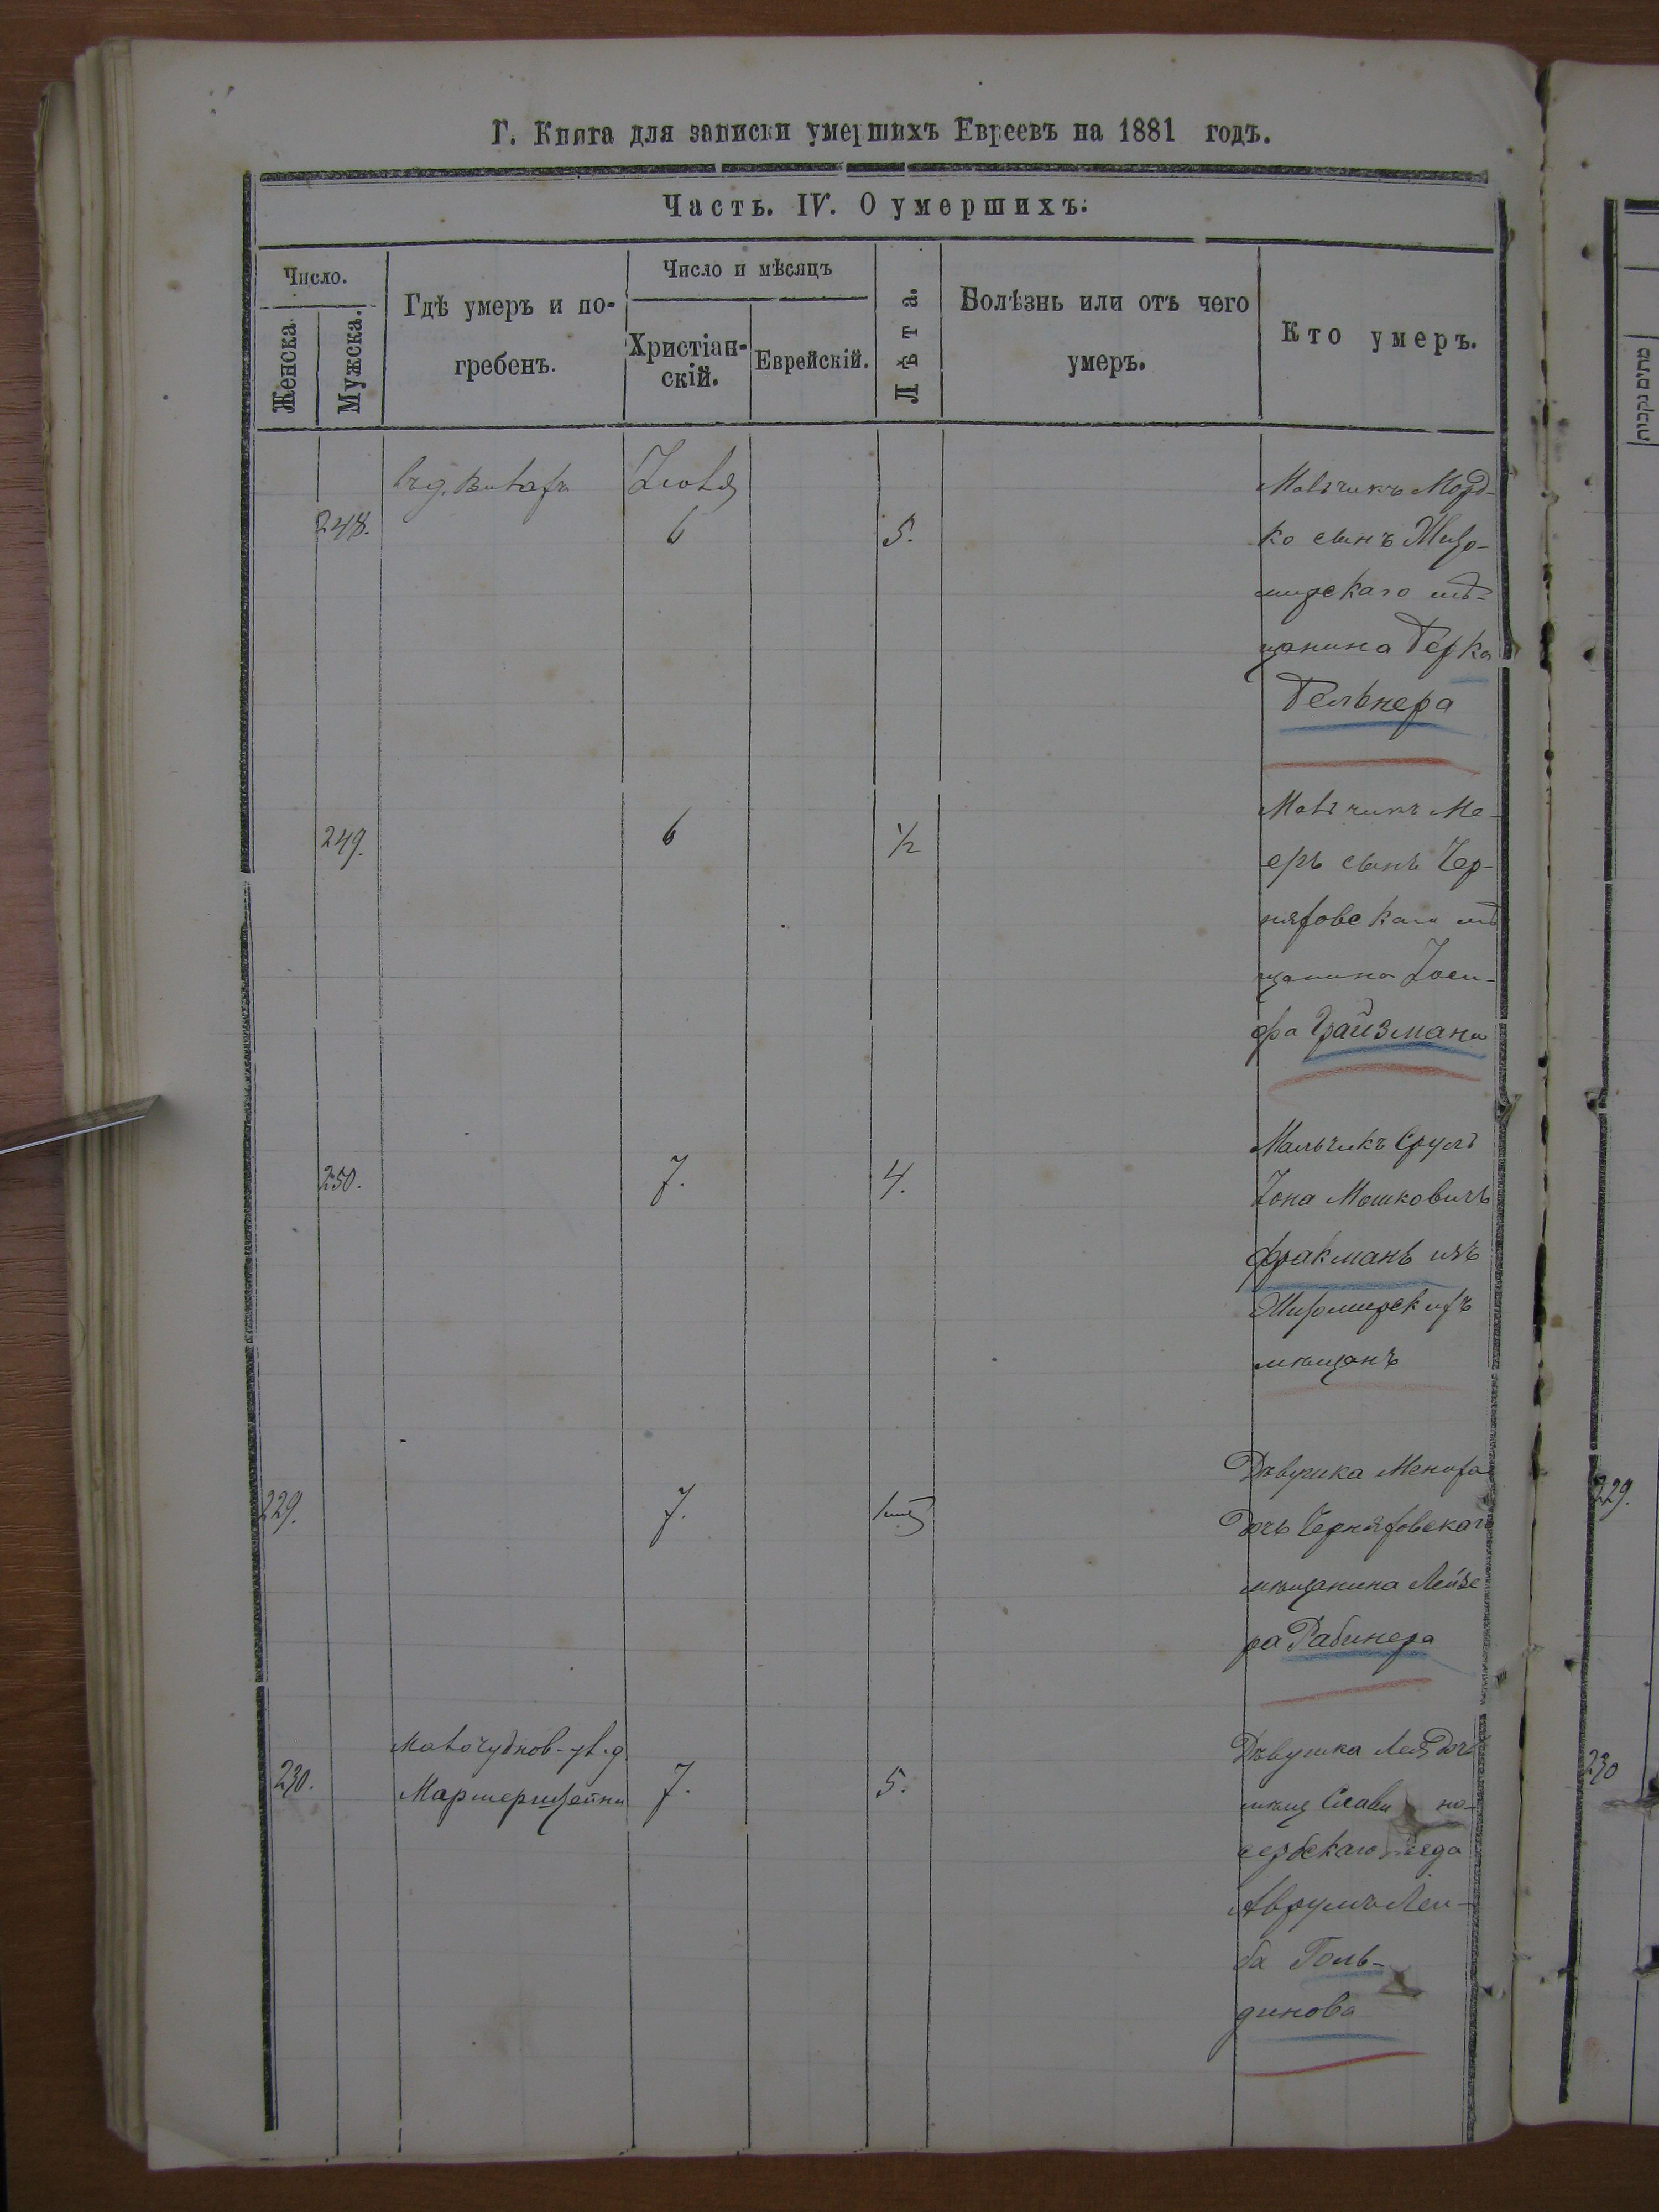 Г. Книга для записки умершихъ Евреевъ на 1881 годъ.
Часть. IV. О умершихъ.
Число.
Женска
Мужска.
Гдѣ умеръ и по-
гребенъ.
Число и мѣсяцъ
Христіан-
скій.
Еврейскій.
Лѣта.
Болѣзнь или отъ чего
умеръ.
Кто умеръ.
Іюля
248.
6
5.
Мальчикъ Морд-
ко сынъ Жито-
мирскаго мѣ-
щанина Берка
Бельнера
249.
6
1/2
Мальчикъ Ме-
еръ сынъ Чер-
няховскаго мѣ
щанина Іоси-
фа Вайзмана
250.
7.
4.
Мальчикъ Сруль
Іона Мошковичъ
Фракманъ изъ
Житомирскихъ
мѣщанъ
229.
7.
Дѣвушка
дочь Черняховскаго
мѣщанина Лейзе
ра Рабинера
230.
7.
5.
Дѣвушка Лея дочь
мѣщ Славя но-
сербскаго
Аврумъ Лей-
ба Голь-
динова
229.
230